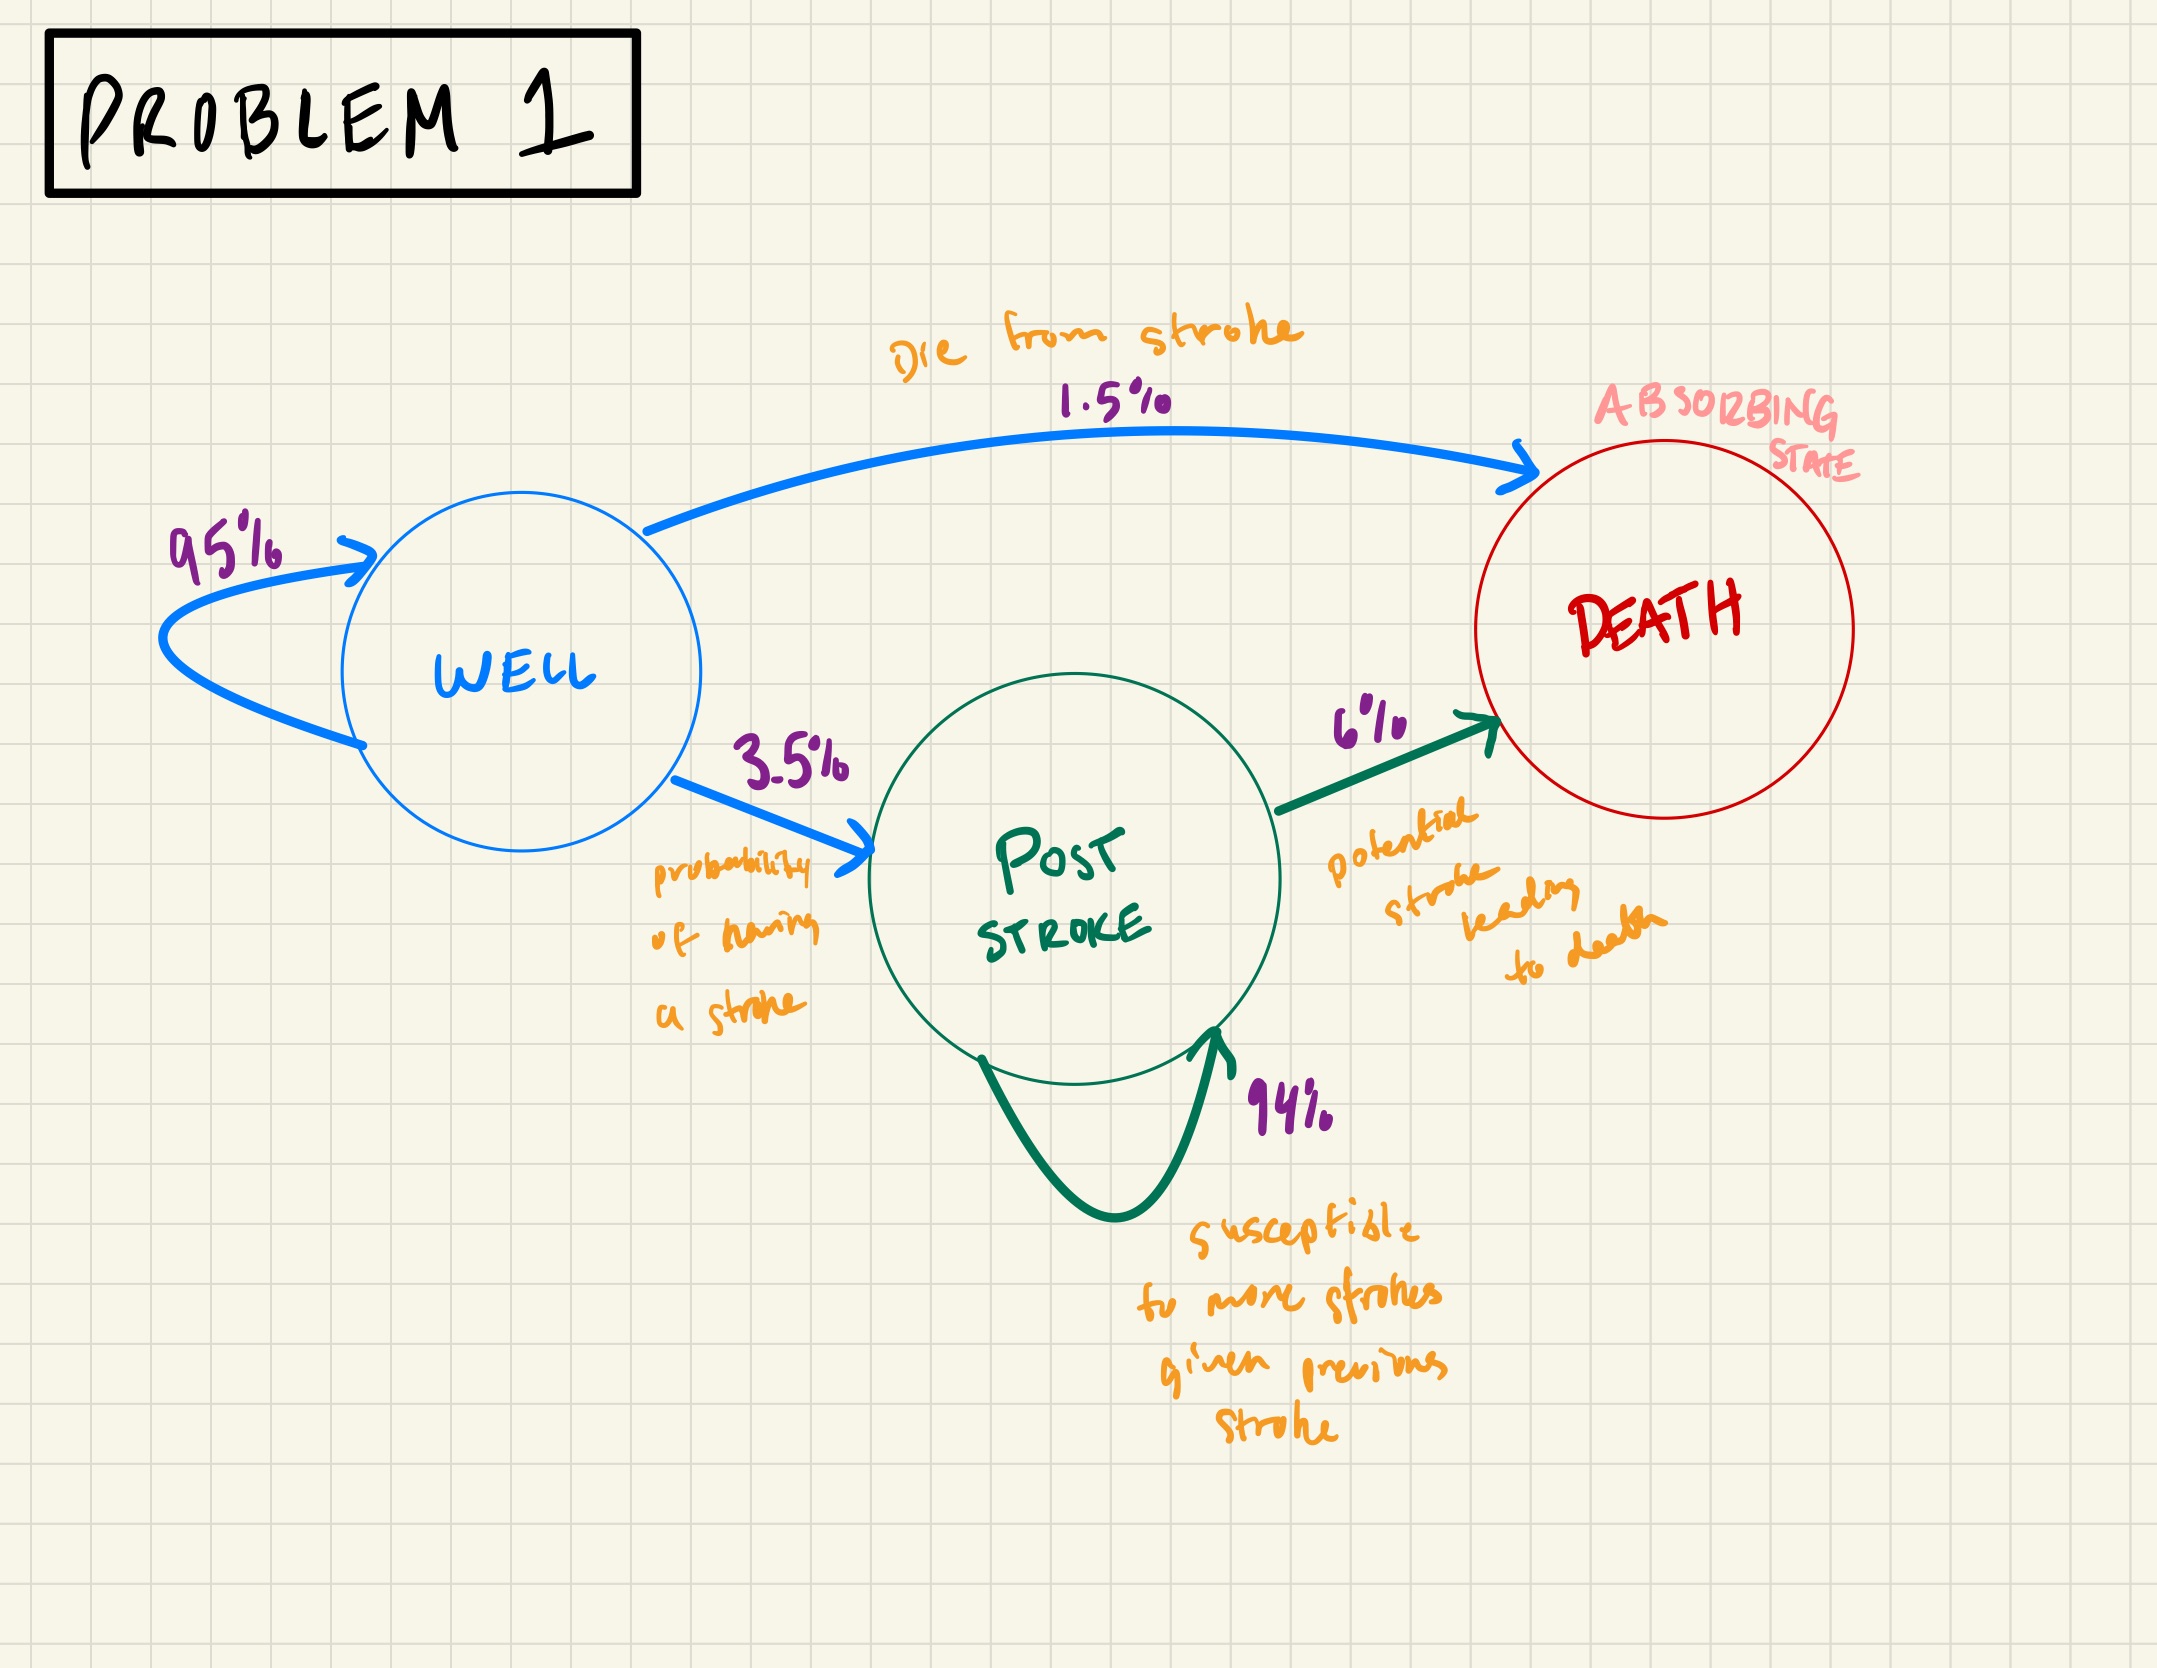 PROBLEM 1
Die from stroke
1.5%
ABSORBING
STATE
95%
WELL
DEATH
3.5%
6%
probability
of having
a stroke
POST
STROKE
potential
stroke
leading
to death
94%
susceptible
to more strokes
given previous
stroke